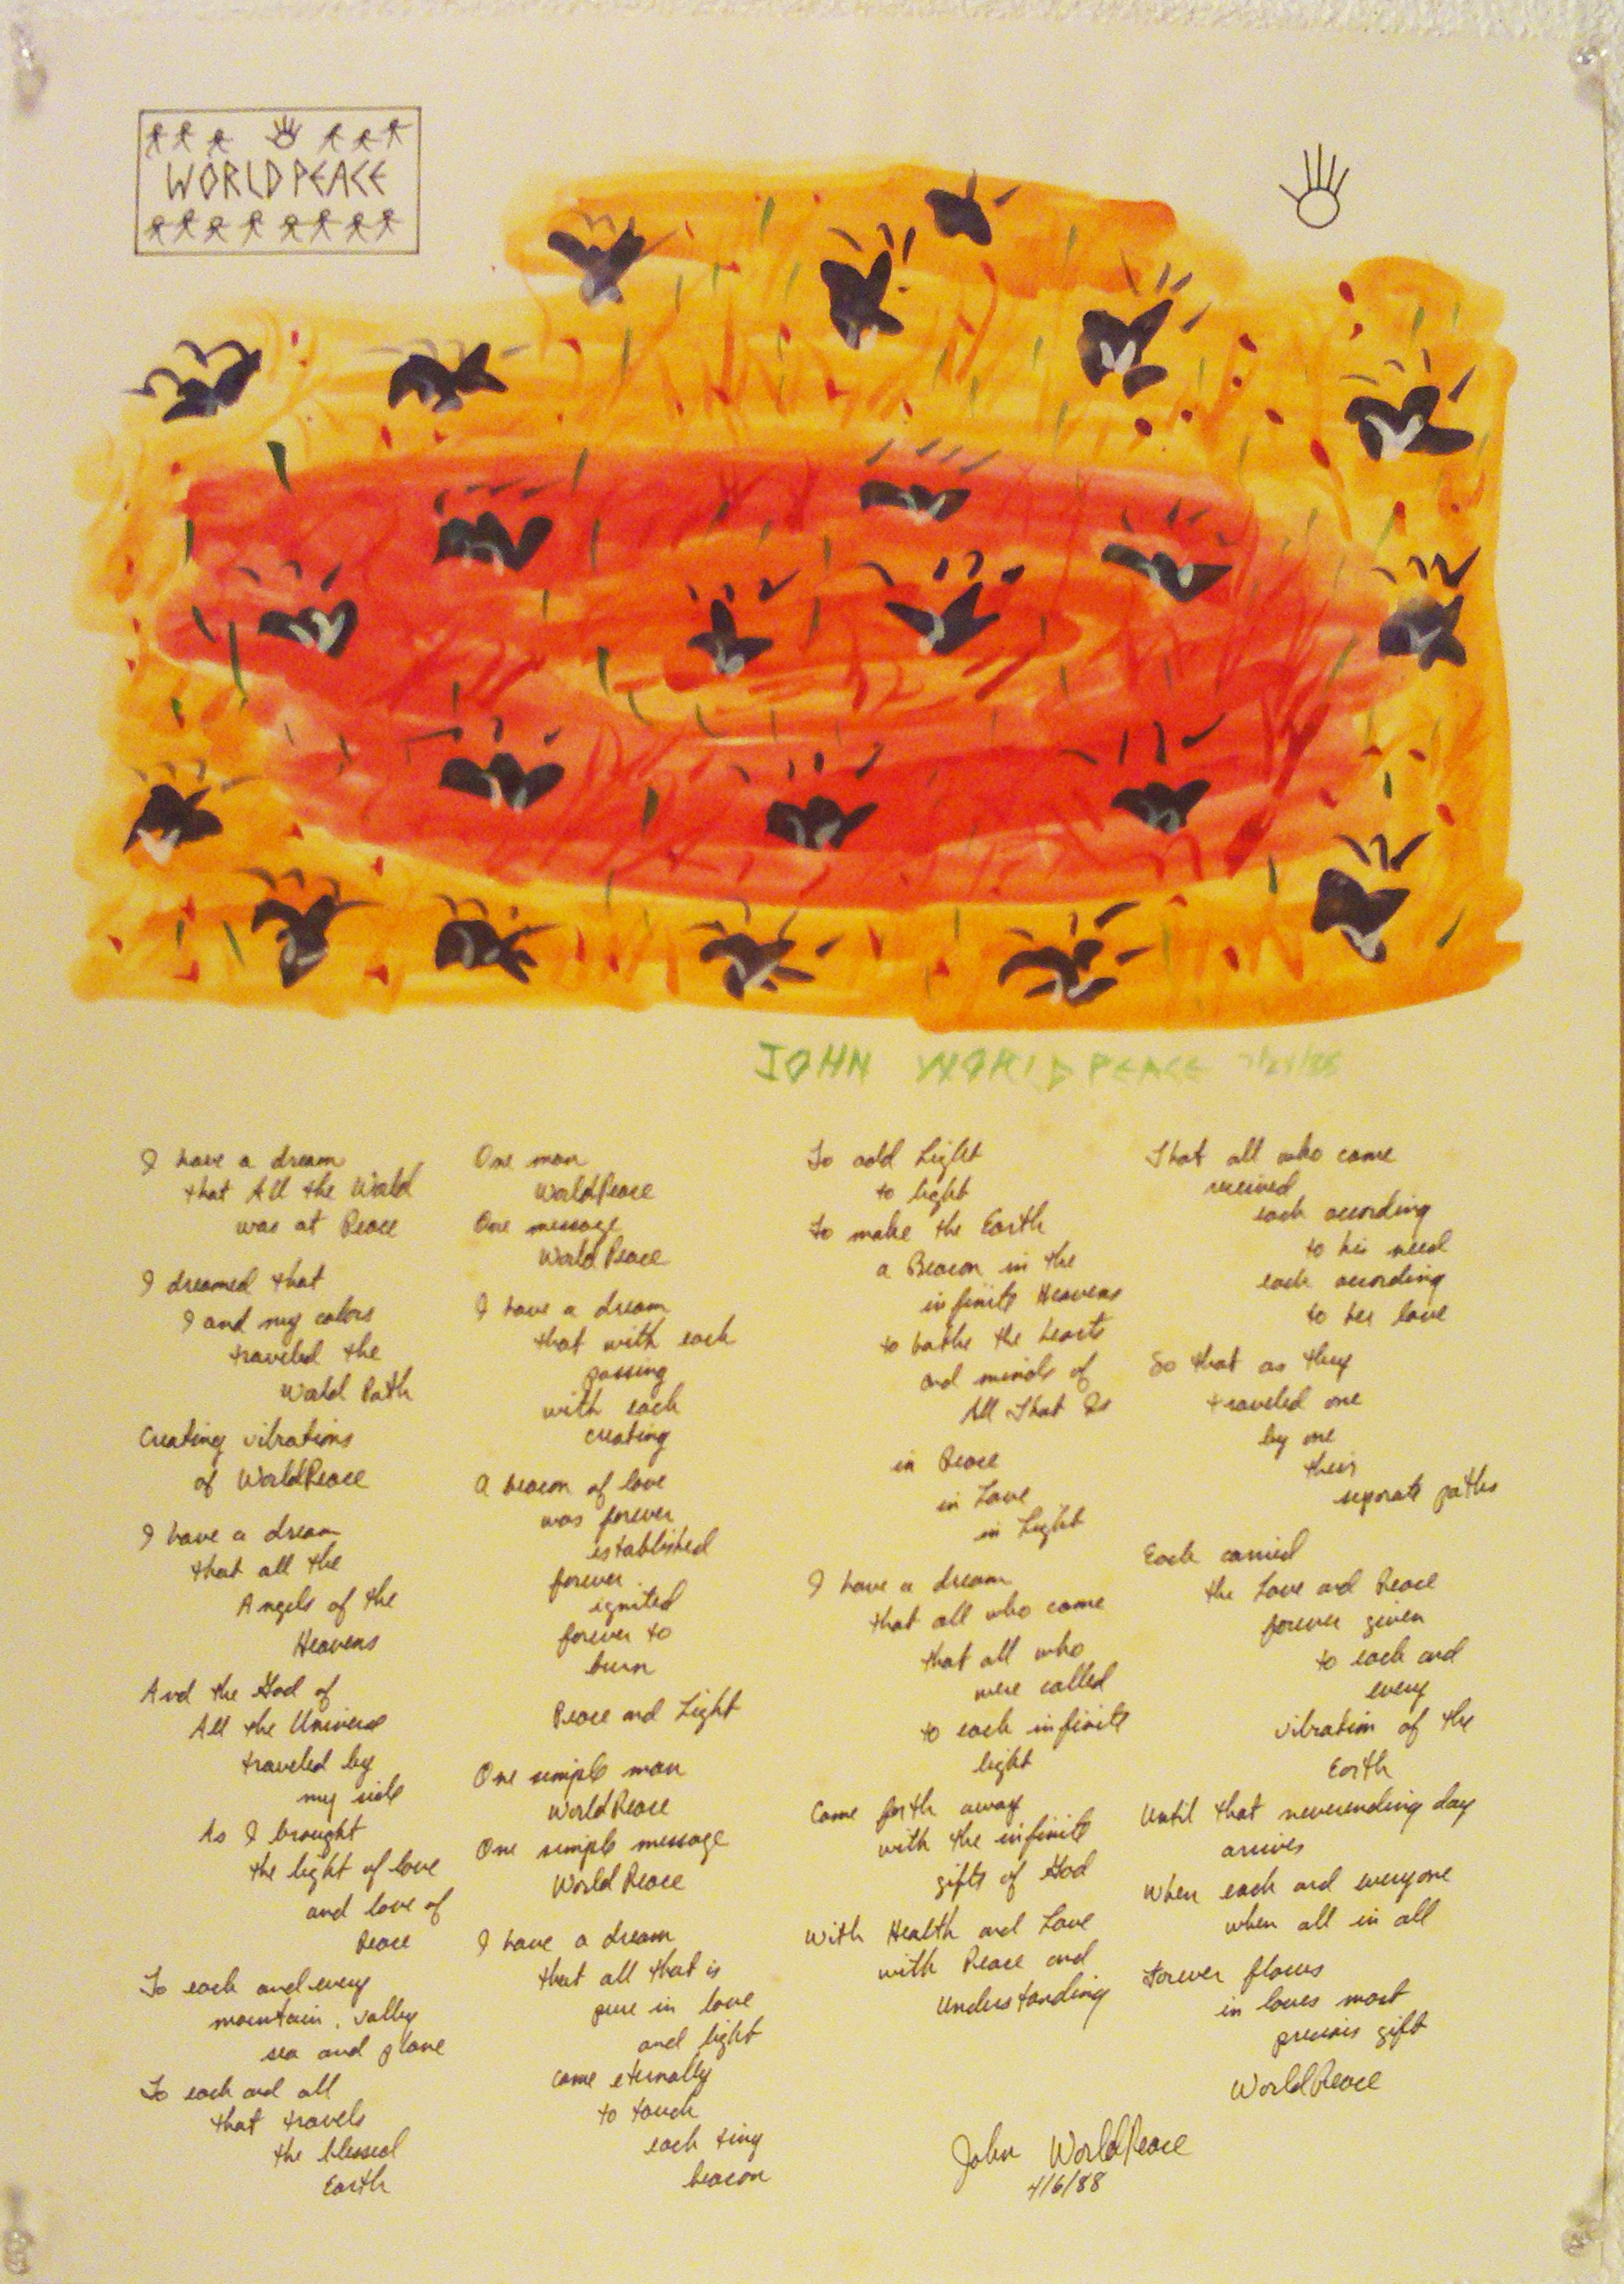 WORLDPEACE
JOHN WORLDPEACE
I have a dream
that All the World
was at Peace
I dreamed that
I and my colors
traveled the
World Path
Creating vibrations
of WorldPeace
I have a dream
that all the
Angels of the
Heavens
And the God of
All the Universe
traveled by
my side
As I brought
the light of love
and love of
Peace
To each and every
mountain, valley
sea and plane
To each and all
that travels
the blessed
Earth
One man
WorldPeace
One message
WorldPeace
I have a dream
that with each
passing
with each
creating
A beacon of love
was forever
established
forever
ignited
forever to
burn
Peace and Light
One simple man
WorldPeace
One simple message
WorldPeace
I have a dream
that all that is
pure in love
and light
come eternally
to touch
each tiny
beacon
To add Light
to light
To make the Earth
a Beacon in the
infinite Heavens
to bathe the hearts
and minds of
All That Is
in Peace
in Love
in Light
I have a dream
that all who came
that all who
were called
to each infinite
light
Come forth away
with the infinite
gifts of God
With Health and Love
with Peace and
Understanding
That all who came
received
each acording
to his need
each acording
to her love
So that as they
traveled one
by one
their
seperate paths
Each carried
the Love and Peace
forever given
to each and
every
vibration of the
Earth
Until that neverending day
arrives
When each and everyone
when all in all
Forever flows
in loves most
precious gift
WorldPeace
John WorldPeace
4/6/88